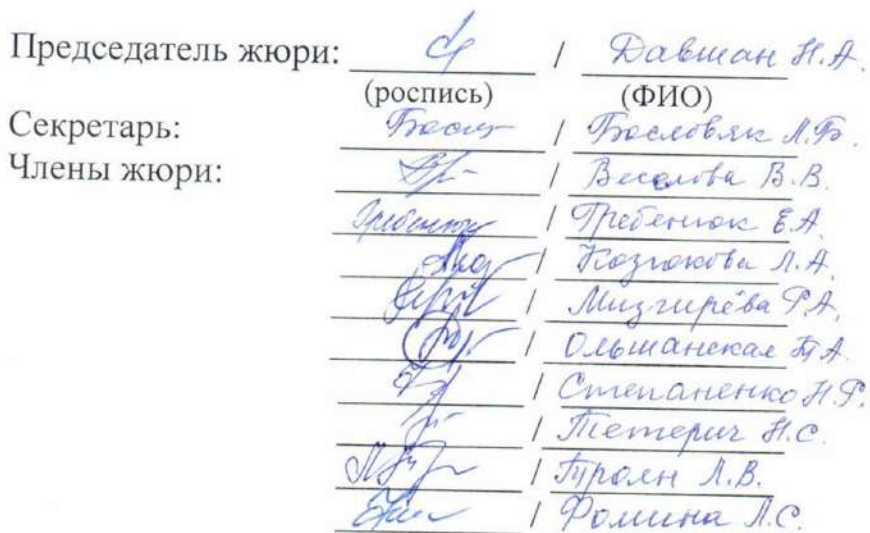 Председатель жюри: / Давшан Н.А.
(роспись) (ФИО)
Секретарь: / Басловяк Л.Б.
Члены жюри: / Веселова В.В.
Гребенюк / Гребенюк Е.А.
/ Козюкова Л.А.
/ Мизгирёва Р.А.
/ Ольшанская Т.А.
/ Степаненко Н.Р.
/ Тетерич Н.С.
/ Троян Л.В.
/ Фомина Л.С.